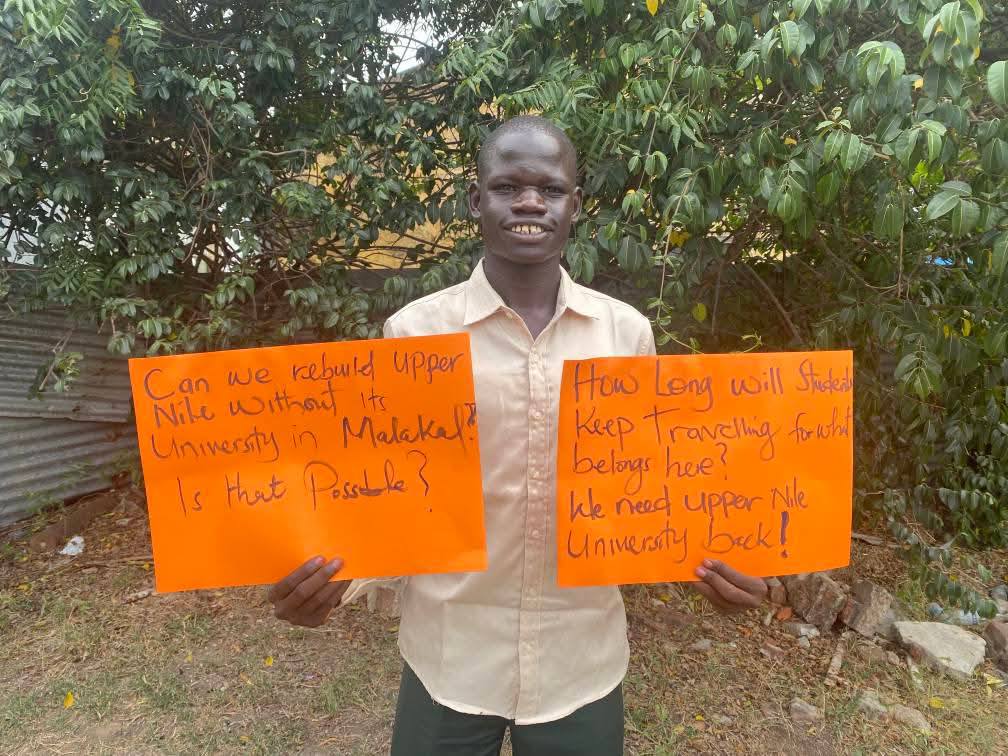 Can we rebuild Upper
Nile without Its
University in Malakal?
Is that Possible?
How Long will Students
Keep Travelling for what
belongs here?
We need Upper Nile
University back!